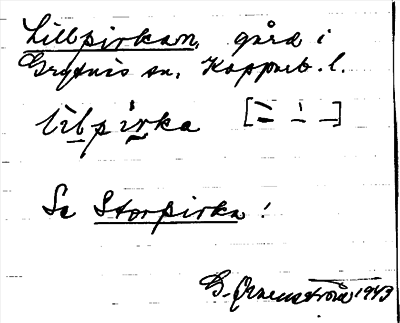 Lillpirkan, gård i
Grytnäs sn. Kopparb. l.
lilpirka
Se Storpirka!
G. Ornenström 1943